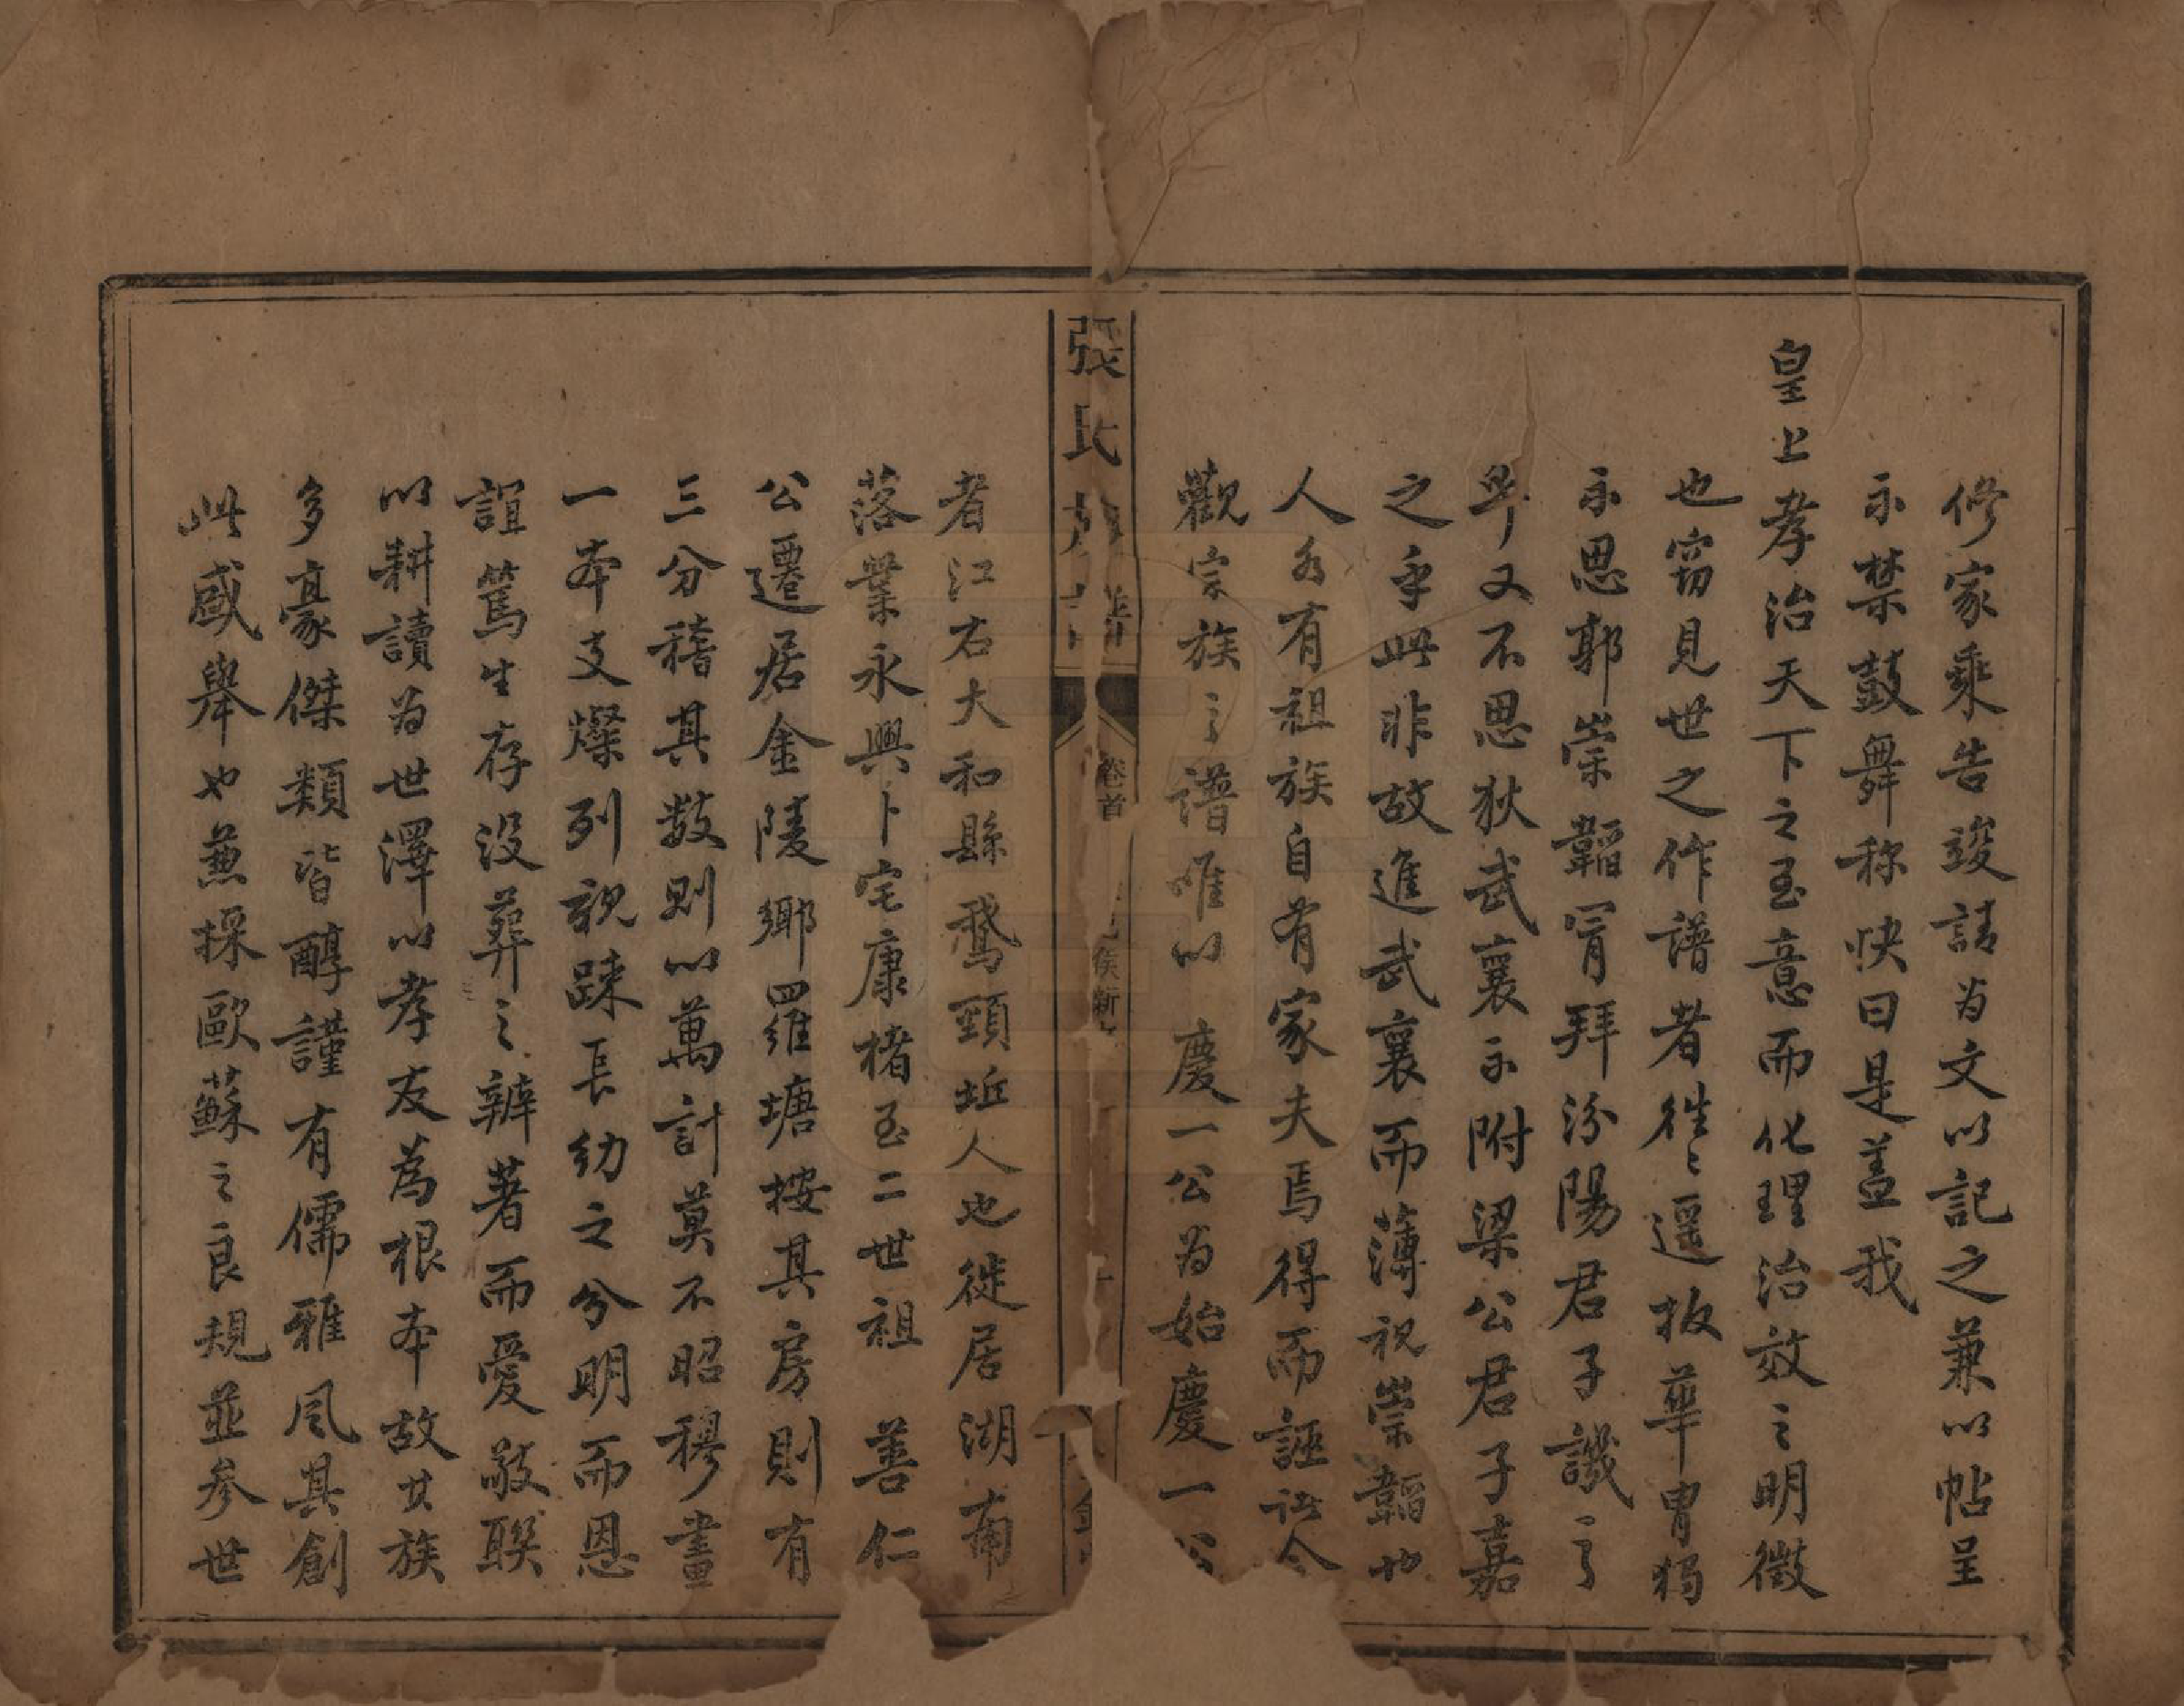 修家乘告竣請为文以記之兼以帖呈
示禁鼓舞称快曰是盖我
皇上孝治天下之至意而化理治效之明徵
也窃見世之作譜者徃〻遥扳華胄獨
不思郭崇韜冐拜汾陽君子譏之
早又不思狄武襄不附梁公君子嘉
之乎此非故進武襄而薄視崇韜也
人各有祖族自有家夫焉得而誣訟今
觀宗族之譜唯以 慶一公为始慶一公
張氏 譜
卷首
者江右大和縣鵞頸坵人也徙居湖南
落業永興卜宅康楮至二世祖 善仁
公遷居金陵鄉羅塘按其房則有
三分稽其数則以萬計莫不昭穆畫
一本支燦列親踈長幼之分明而恩
誼篤生存没葬之辨著而愛敬聯
以耕讀为世澤以孝友為根本故其族
多豪傑類皆醇謹有儒雅風其創
此盛舉也兼採歐蘇之良規並参世